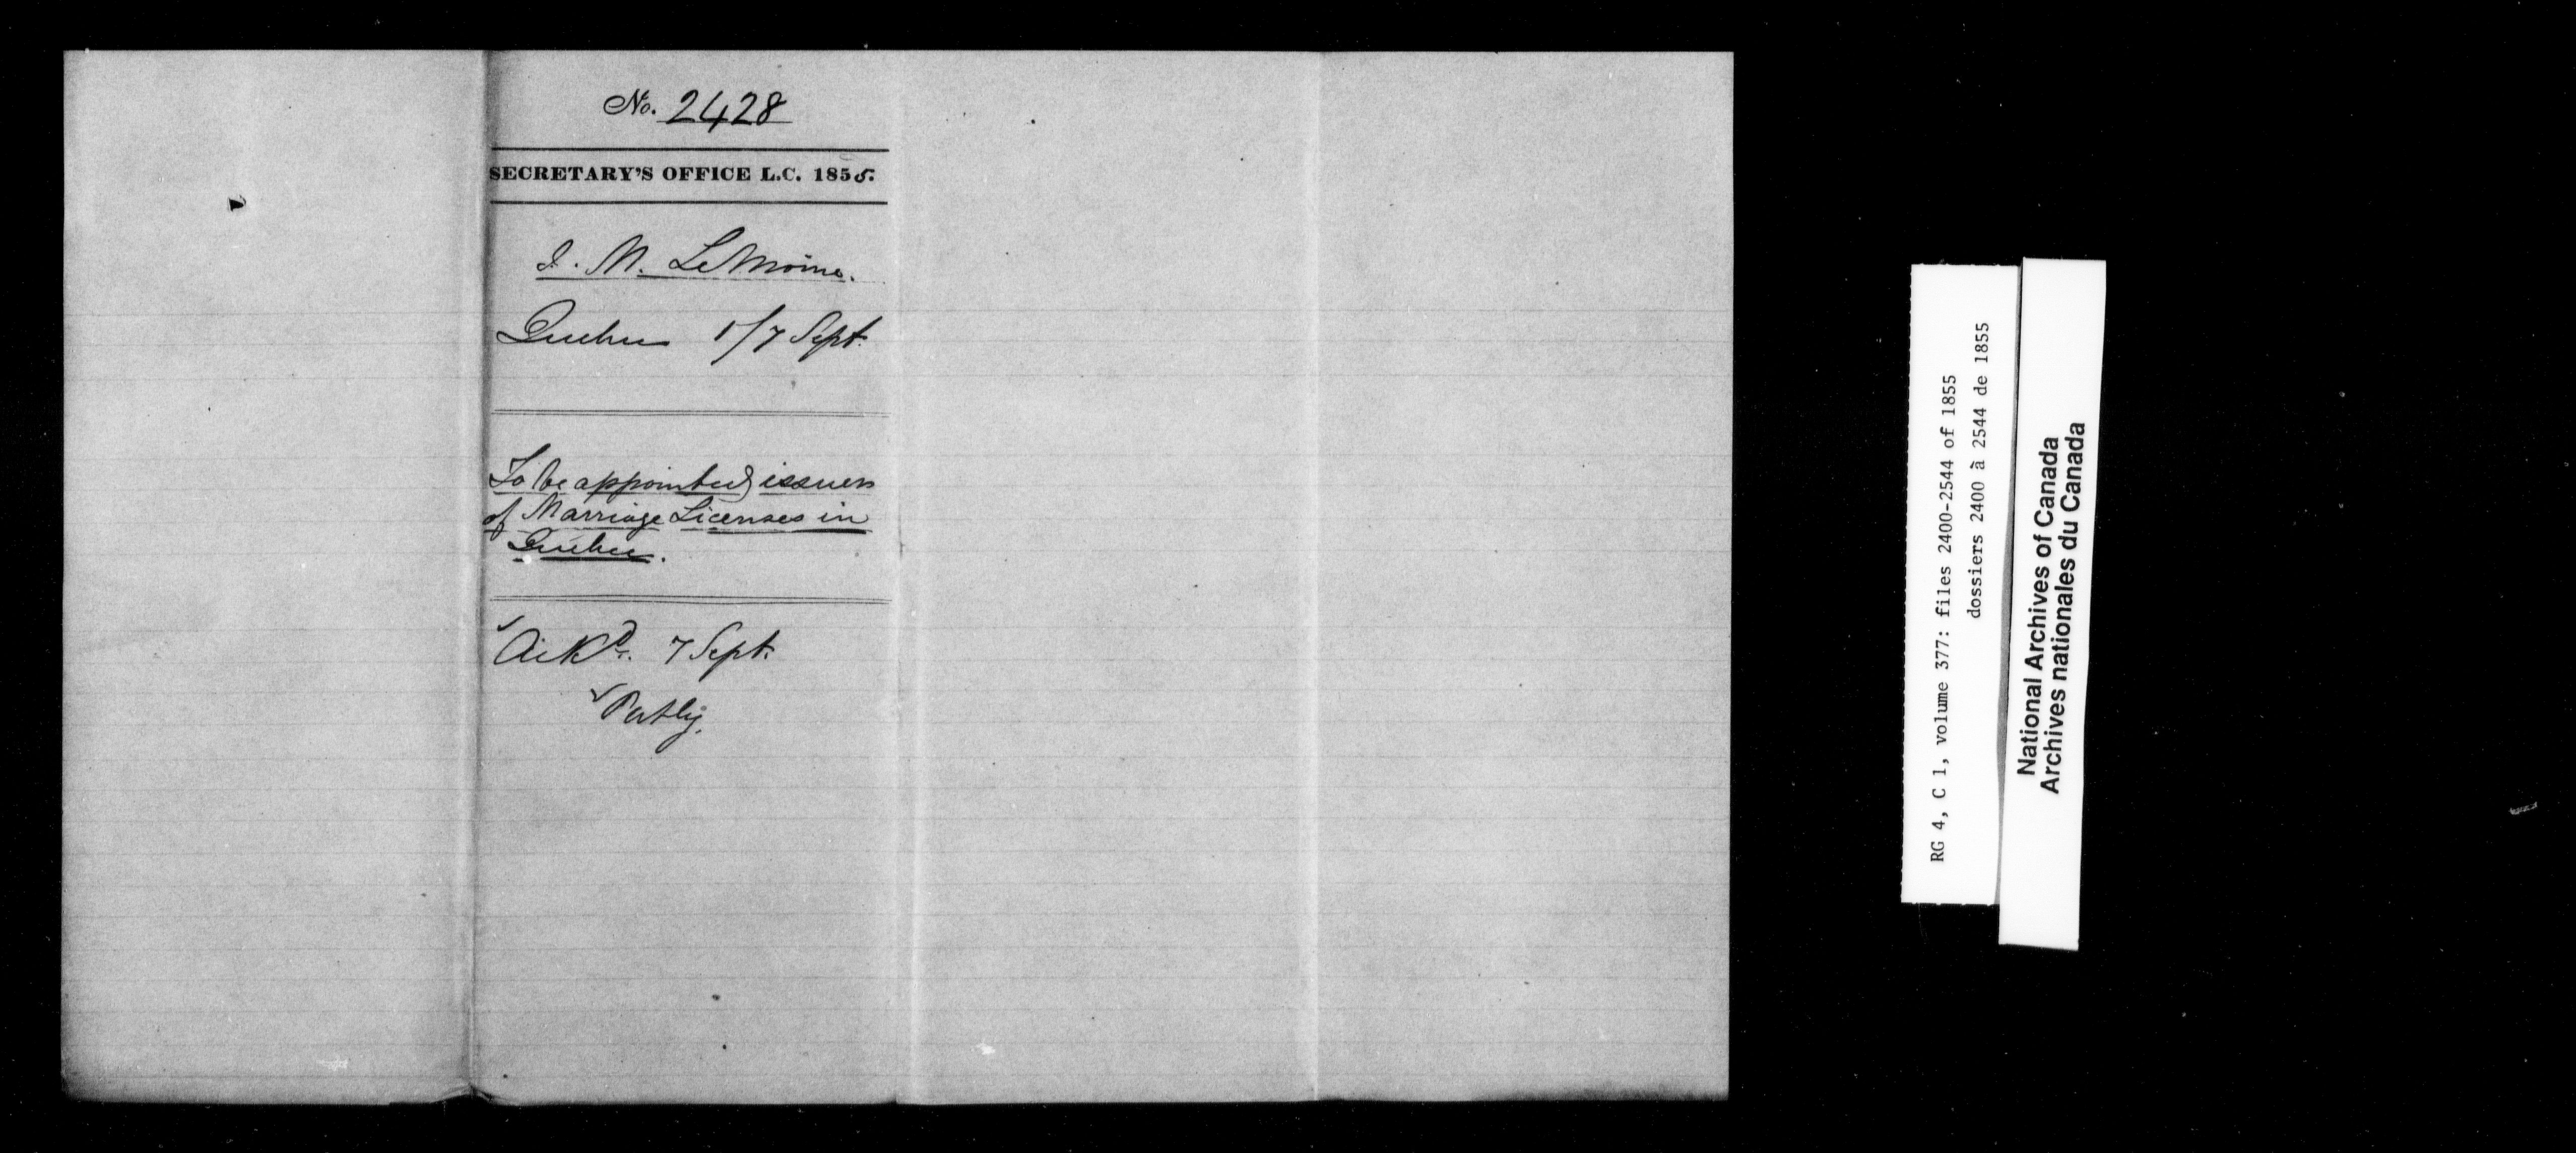 No. 2428
SECRETARY'S OFFICE L.C. 1855.
J. M. LeMoine.
Quebec 1/7 Sept.
To be appointed issuer
of Marriage Licenses in
Quebec.
Ackd. 7 Sept.
RG 4, C 1, volume 377: files 2400-2544 of 1855
dossiers 2400 à 2544 de 1855
National Archives of Canada
Archives nationales du Canada